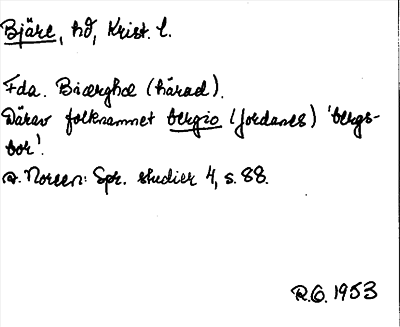 Bjäre, hd, Krist. l.
Fda. Biærghæ (härad).
Därav folknamnet bergio (Jordanes) 'bergs-
bor'.
A. Noreen: Spr. studier 4, s. 88.
R.O. 1953